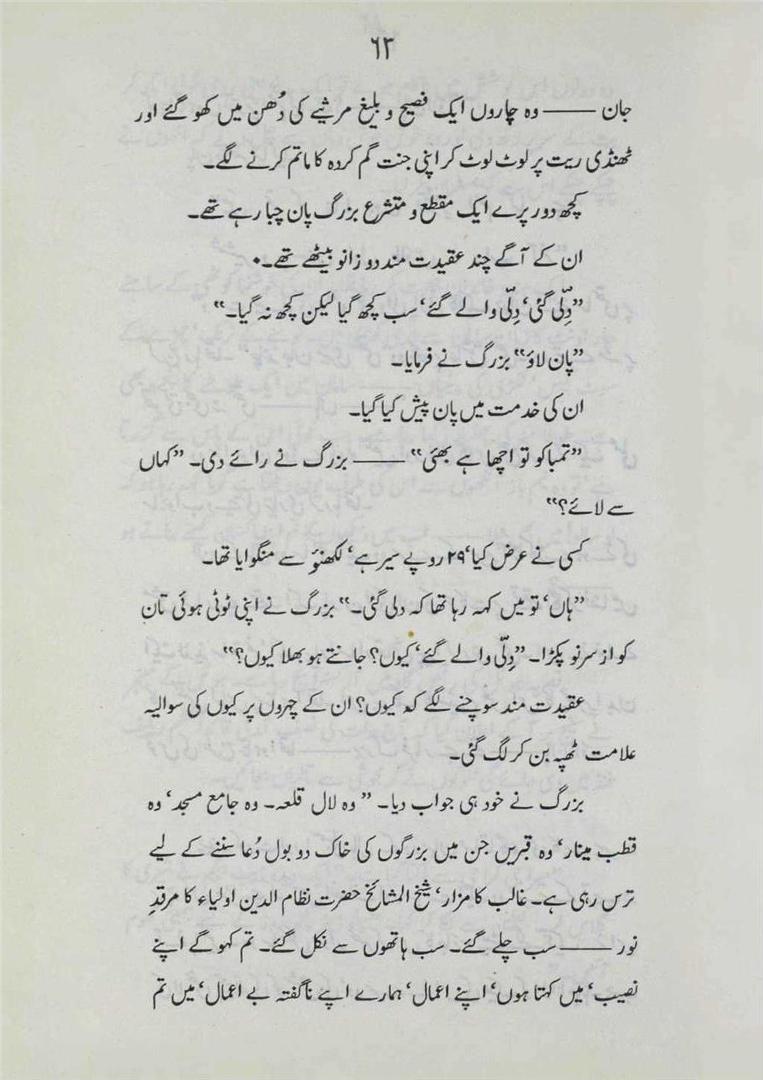 ۶۳
جان ——— وہ چاروں ایک فصیح و بلیغ مرثیے کی دُھن میں کھو گئے اور
ٹھنڈی ریت پر لوٹ لوٹ کر اپنی جنت گم کردہ کا ماتم کرنے لگے۔
کچھ دور پرے ایک مقطع و متشرع بزرگ پان چبا رہے تھے۔
ان کے آگے چند عقیدت مند دو زانو بیٹھے تھے۔
”دِلّی گئی‘ دِلّی والے گئے‘ سب کچھ گیا لیکن کچھ نہ گیا۔“
”پان لاؤ“ بزرگ نے فرمایا۔
ان کی خدمت میں پان پیش کیا گیا۔
”تمباکو تو اچھا ہے بھئی“ ——— بزرگ نے رائے دی۔ ”کہاں
سے لائے؟“
کسی نے عرض کیا‘ ۲۹ روپے سیر ہے‘ لکھنؤ سے منگوایا تھا۔
”ہاں‘ تو میں کہہ رہا تھا کہ دلی گئی۔“ بزرگ نے اپنی ٹوٹی ہوئی تان
کو از سر نو پکڑا۔ ”دِلّی والے گئے‘ کیوں؟ جانتے ہو بھلا کیوں؟“
عقیدت مند سوچنے لگے کہ کیوں؟ ان کے چہروں پر کیوں کی سوالیہ
علامت ٹھپہ بن کر لگ گئی۔
بزرگ نے خود ہی جواب دیا۔ ”وہ لال قلعہ۔ وہ جامع مسجد‘ وہ
قطب مینار‘ وہ قبریں جن میں بزرگوں کی خاک دو بول دُعا سننے کے لیے
ترس رہی ہے۔ غالب کا مزار‘ شیخ المشائخ حضرت نظام الدین اولیاء کا مرقدِ
نور ——— سب چلے گئے۔ سب ہاتھوں سے نکل گئے۔ تم کہو گے اپنے
نصیب‘ میں کہتا ہوں‘ اپنے اعمال‘ ہمارے اپنے ناگفتہ بے اعمال‘ میں تم